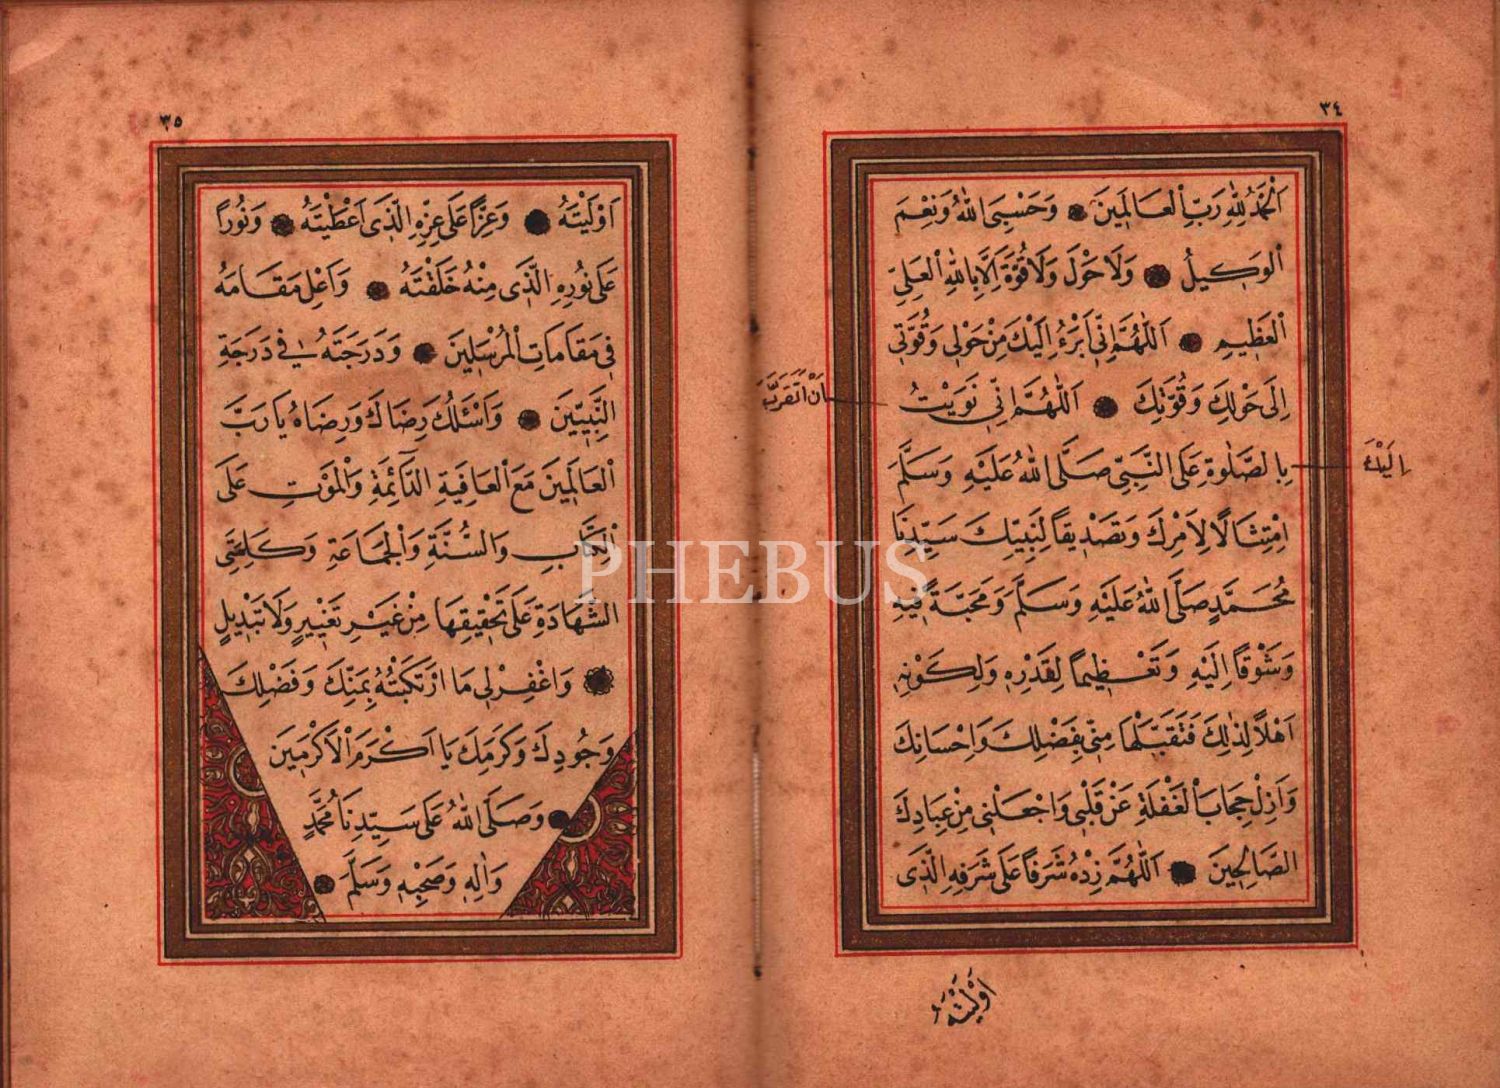 ٣٤
اَلْحَمْدُ لِلّٰهِ رَبِّ الْعَالَمِينَ وَحَسْبِىَ اللّٰهُ وَنِعْمَ
الْوَكِيلُ وَلَا حَوْلَ وَلَا قُوَّةَ اِلَّا بِاللّٰهِ الْعَلِىِّ
الْعَظِيمِ اَللّٰهُمَّ اِنِّى اَبْرَءُ اِلَيْكَ مِنْ حَوْلِى وَقُوَّتِى
اِلَى حَوْلِكَ وَقُوَّتِكَ اَللّٰهُمَّ اِنِّى نَوَيْتُ
اَنْ اَتَقَرَّبَ
بِالصَّلٰوةِ عَلَى النَّبِىِّ صَلَّى اللّٰهُ عَلَيْهِ وَسَلَّمَ
اِلَيْكَ
اِمْتِثَالًا لِاَمْرِكَ وَتَصْدِيقًا لِنَبِيِّكَ سَيِّدِنَا
مُحَمَّدٍ صَلَّى اللّٰهُ عَلَيْهِ وَسَلَّمَ وَمَحَبَّةً فِيهِ
وَشَوْقًا اِلَيْهِ وَتَعْظِيمًا لِقَدْرِهِ وَلِكَوْنِهِ
اَهْلًا لِذٰلِكَ فَتَقَبَّلْهَا مِنِّى بِفَضْلِكَ وَاِحْسَانِكَ
وَاَزِلْ حِجَابَ الْغَفْلَةِ عَنْ قَلْبِى وَاجْعَلْنِى مِنْ عِبَادِكَ
الصَّالِحِينَ اَللّٰهُمَّ زِدْهُ شَرَفًا عَلَى شَرَفِهِ الَّذِى
اَوْلَيْتَهُ
٣٥
اَوْلَيْتَهُ وَعِزًّا عَلَى عِزِّهِ الَّذِى اَعْطَيْتَهُ وَنُورًا
عَلَى نُورِهِ الَّذِى مِنْهُ خَلَقْتَهُ وَاَعْلِ مَقَامَهُ
فِى مَقَامَاتِ الْمُرْسَلِينَ وَدَرَجَتَهُ فِى دَرَجَةِ
النَّبِيِّينَ وَاَسْئَلُكَ رِضَاكَ وَرِضَاهُ يَا رَبَّ
الْعَالَمِينَ مَعَ الْعَافِيَةِ الدَّائِمَةِ وَالْمَوْتِ عَلَى
الْكِتَابِ وَالسُّنَّةِ وَالْجَمَاعَةِ وَكَلِمَتَىِ
الشَّهَادَةِ عَلَى تَحْقِيقِهَا مِنْ غَيْرِ تَغْيِيرٍ وَلَا تَبْدِيلٍ
وَاغْفِرْ لِى مَا ارْتَكَبْتُهُ بِمَنِّكَ وَفَضْلِكَ
وَجُودِكَ وَكَرَمِكَ يَا اَكْرَمَ الْاَكْرَمِينَ
وَصَلَّى اللّٰهُ عَلَى سَيِّدِنَا مُحَمَّدٍ
وَاٰلِهِ وَصَحْبِهِ وَسَلَّمَ
PHEBUS